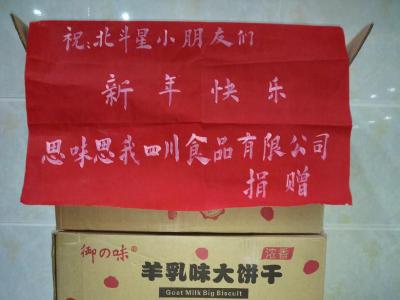 祝:北斗星小朋友们
新年快乐
思味思我四川食品有限公司
捐赠
御の味
浓香
羊乳味大饼干
Goet Milk Big Biscuit